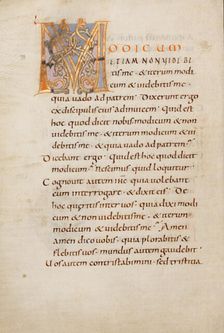 MODICUM
ETIAM NON VIDEBI
tisme & iterum modi
cum & videbitisme
quia vado ad patrem Dixerunt ergo
ex discipulis eius ad invicem Quid est
hoc quod dicit nobis modicum & non
videbitis me & iterum modicum &
videbitis me & quia vado ad patrem
Dicebant ergo Quid est hoc quod dicit
modicum nescimus quid loquitur
Cognovit autem ihs quia volebant
eum interrogare & dixit eis De
hoc queritis inter vos quia dixi modi
cum & non videbitis me & iterum
modicum & videbitis me Amen
amen dico vobis quia plorabitis &
flebitis vos mundus autem gaudebit
Vos autem contristabimini sed tristitia